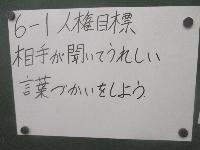 6-1 人権目標
相手が聞いてうれしい
言葉づかいをしよう。